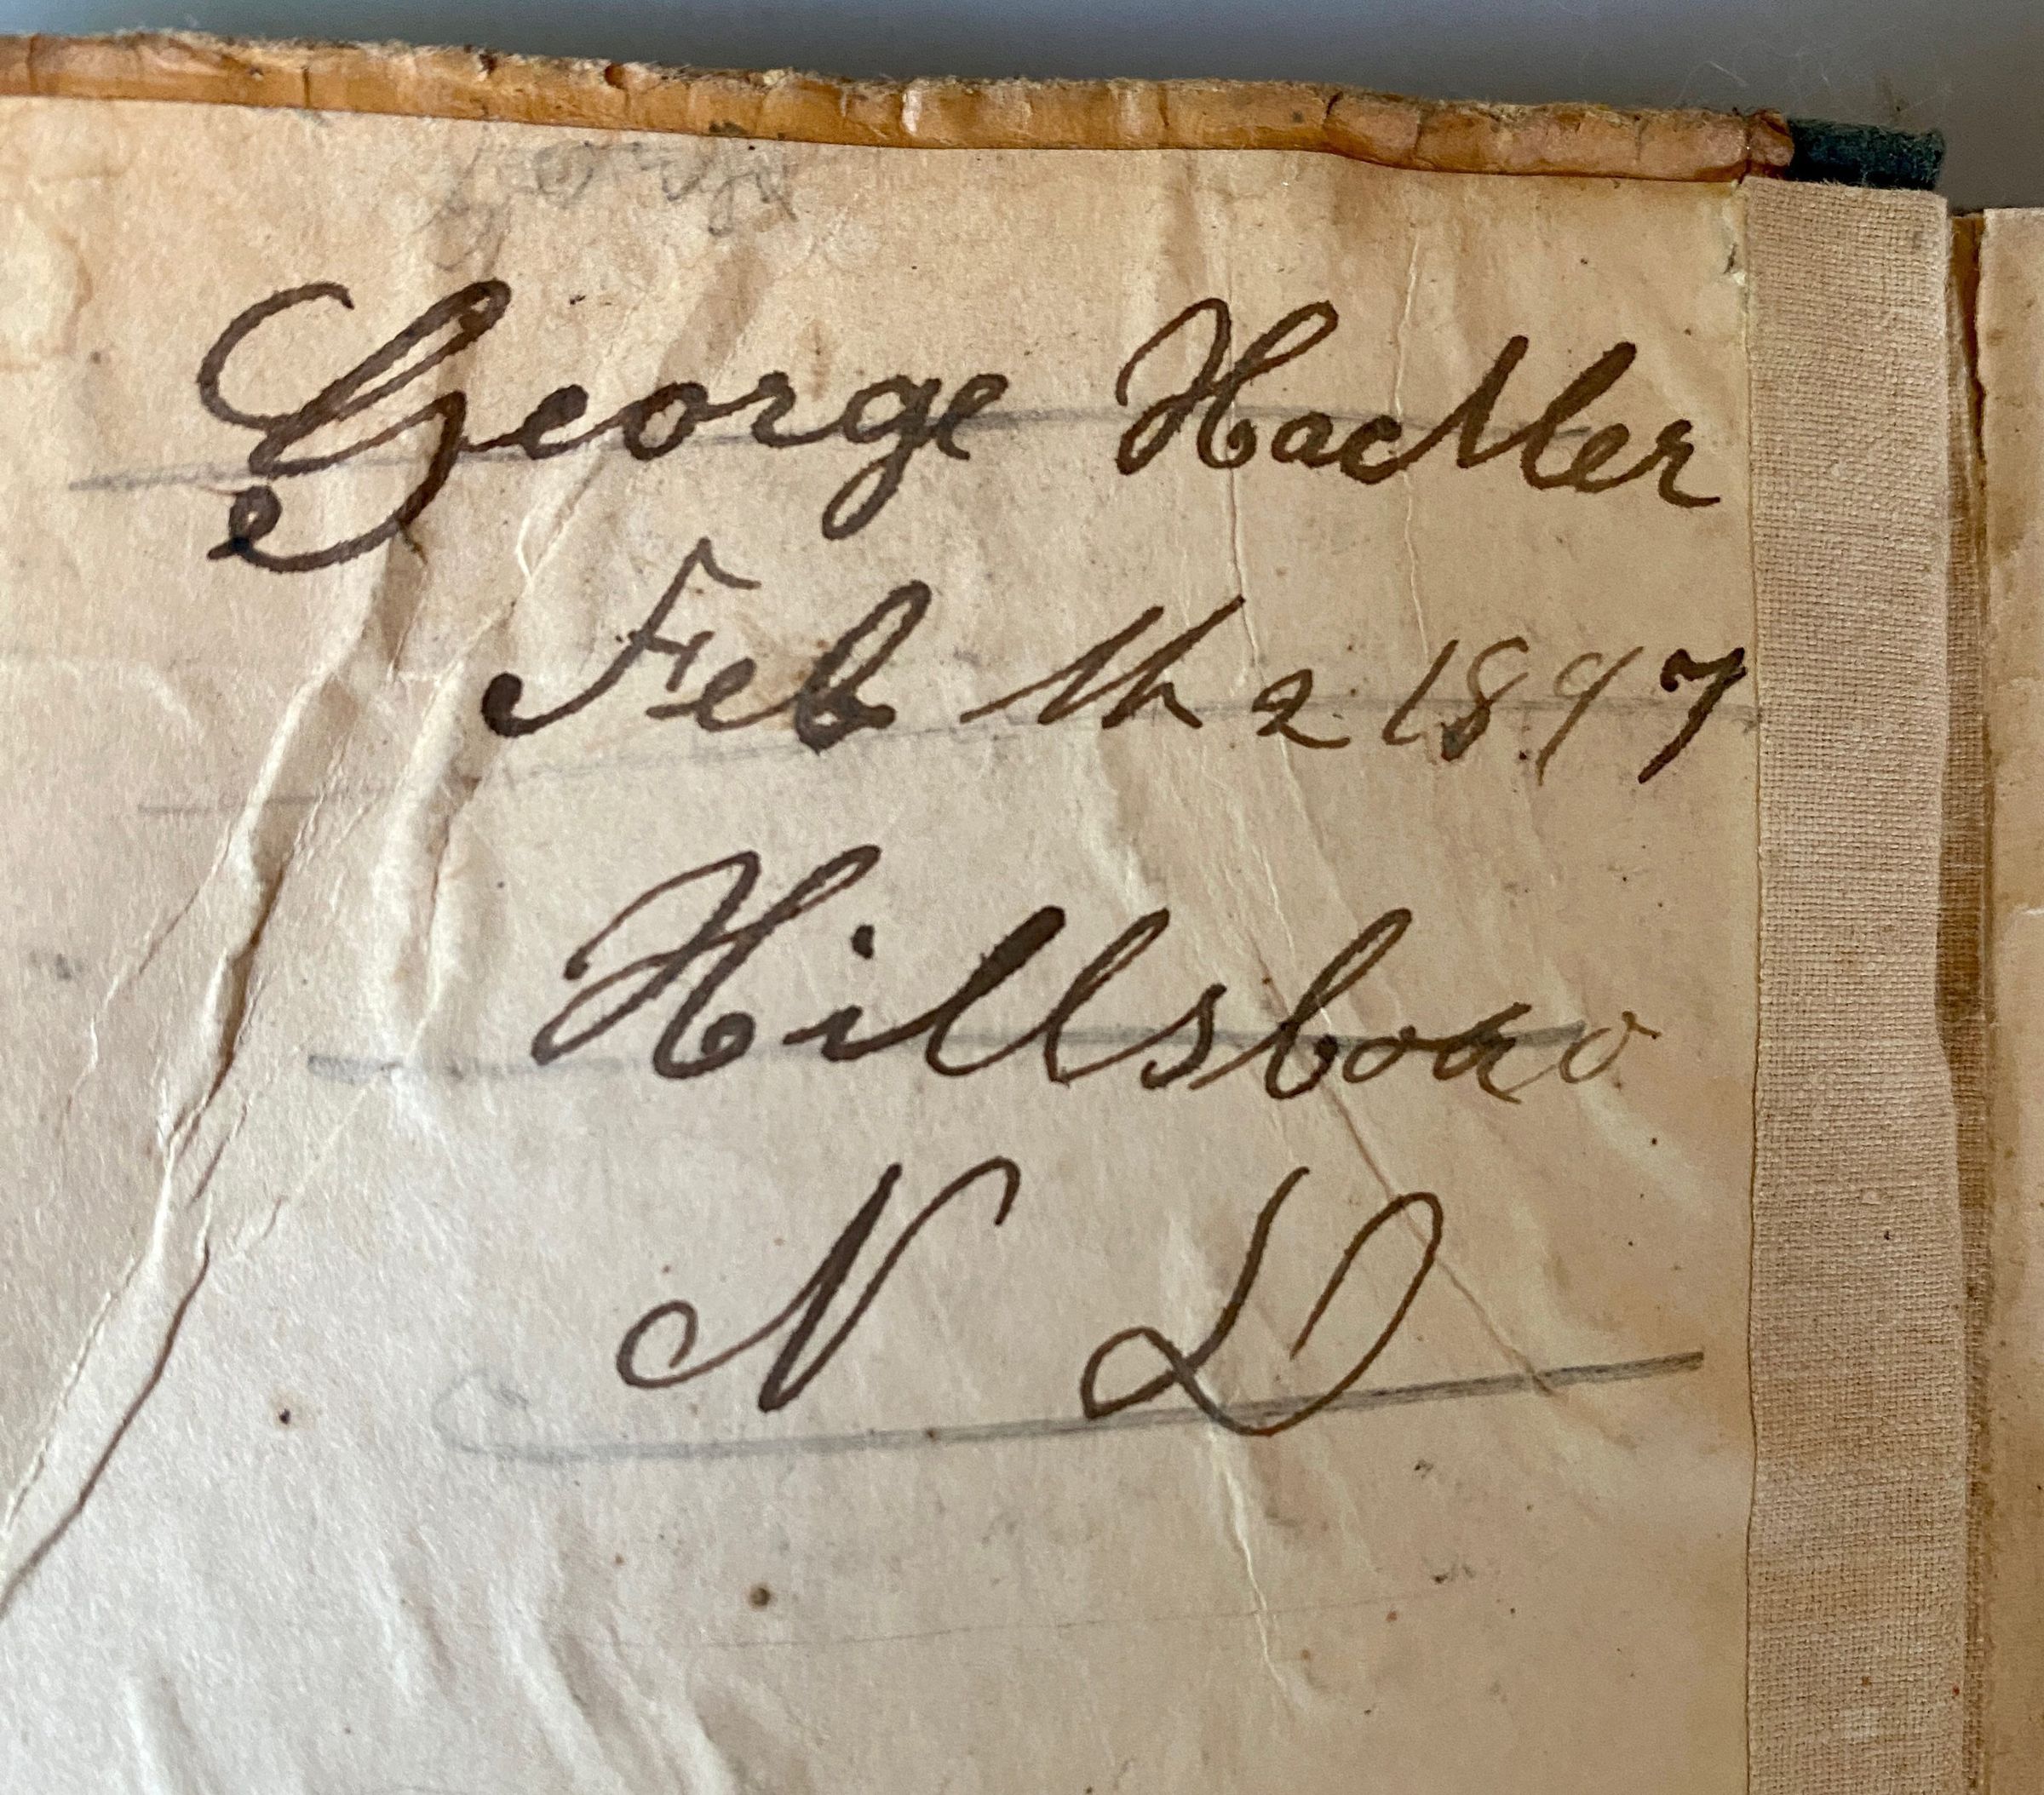 George Hadler
Feb th 2 1897
Hillsboro
N D